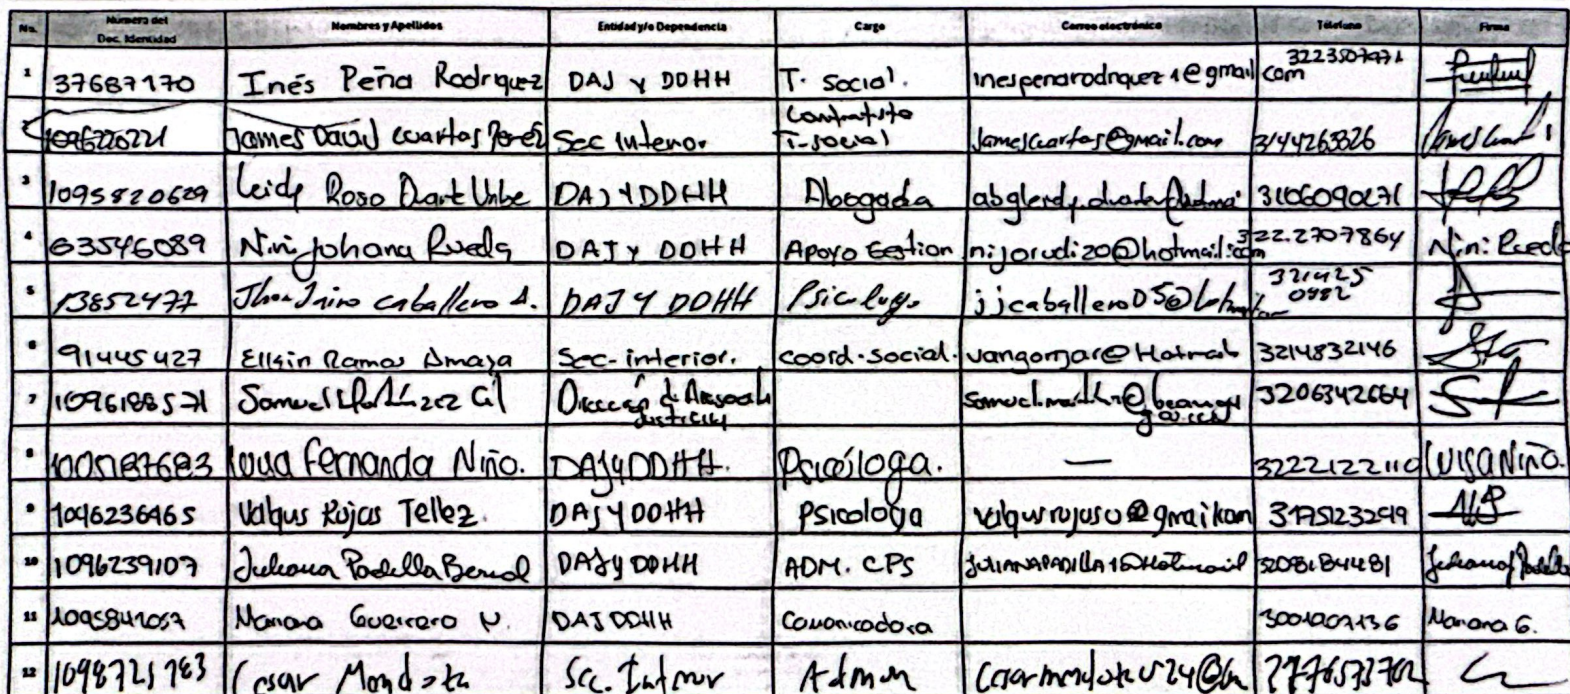 No. Número del Doc. Identidad Nombres y Apellidos Entidad y/o Dependencia Cargo Correo electrónico Teléfono Firma
1 37687170 Inés Peña Rodriguez DAJ y DDHH T. Social. inespenarodriguez1@gmail.com 3223507971
2 1096220221 James David Cuartas Perez Sec Interior Contratista T-social jamescuartas@gmail.com 3144263326
3 1095820629 Leidy Roso Duarte Uribe DAJ Y DDHH Abogada 3106090271
4 63546089 Nini Johana Rueda DAJ y DDHH Apoyo Gestion nijorudizo@hotmail.com 322.2707864 Nini Rueda
5 13852477 Jhon Jairo Caballero A. DAJ Y DDHH Psicologo 321425 0882
6 91445427 Elkin Ramos Amaya Sec-interior. coord-social. vangorjar@Hotmail 3214832146
7 1096188571 Samuel Martínez Gil Dirección de Justicia 3206342664
8 1005187683 Luisa Fernanda Niño. DAJ y DDHH. Psicóloga. — 3222122110 LUISA NIÑO.
9 1096236465 Valqus Rojas Tellez. DAJ Y DDHH Psicologa 3175123249
10 1096239107 Juliana Padilla Bernal DAJ y DDHH ADM. CPS JULIANAPADILLA15@Hotmail 3208184481 Juliana Padilla
11 1095841057 Mariana Guerrero N. DAJ DDHH Comunicadora Mariana G.
12 1098721783 Cesar Mendoza Sec. Interior Admon